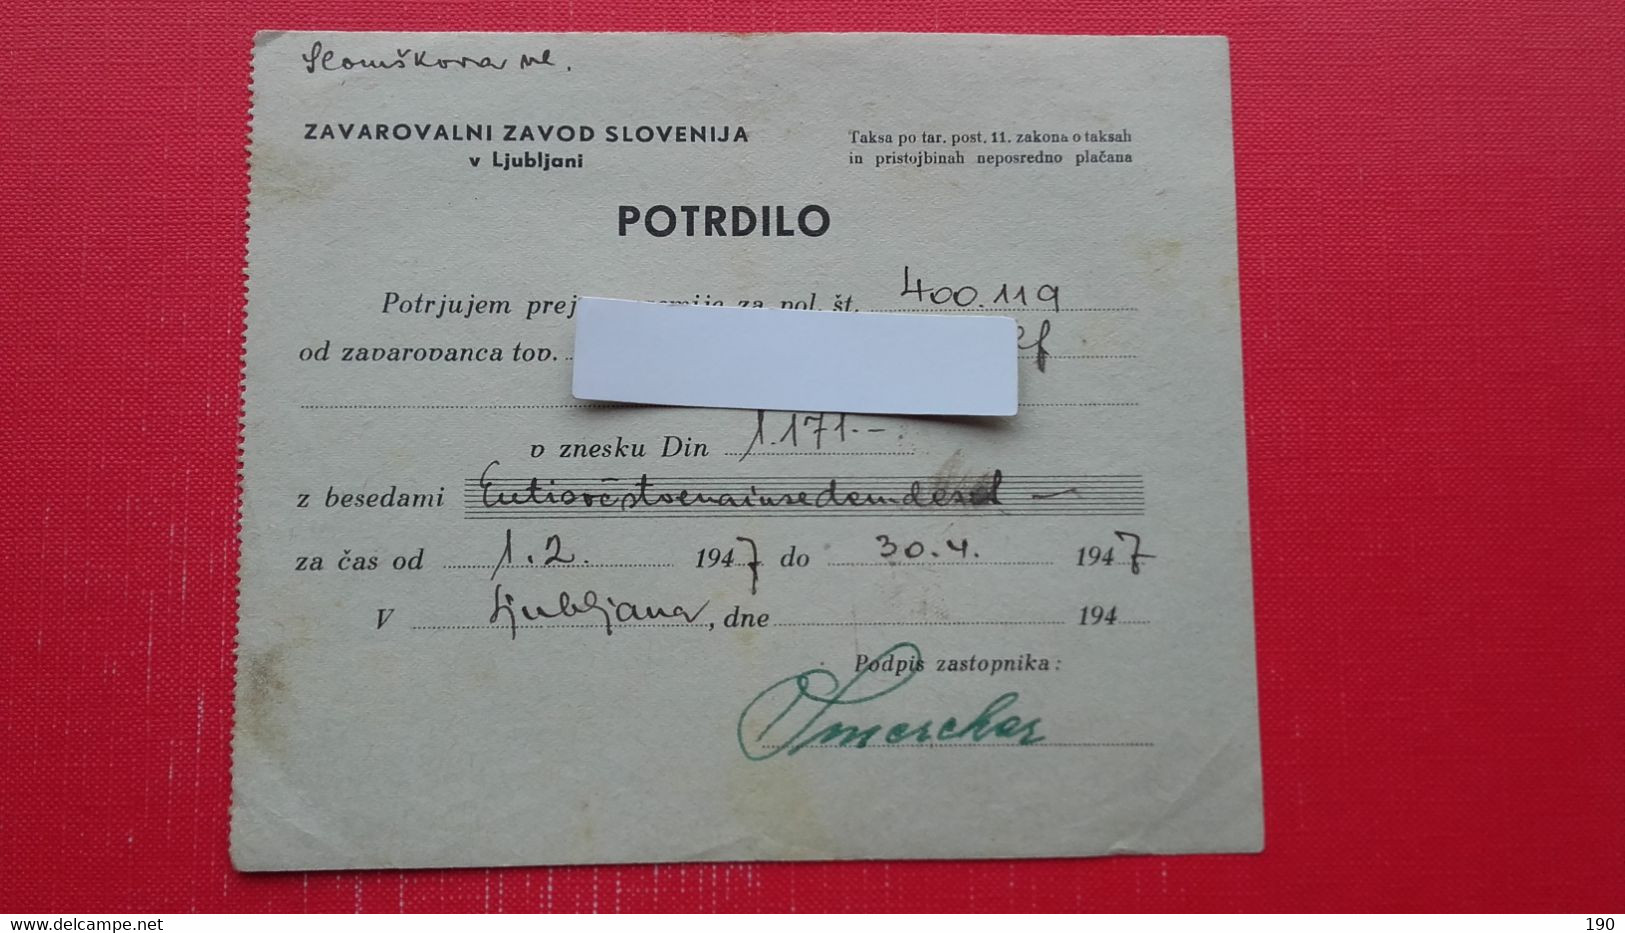 Slomškova ul.
ZAVAROVALNI ZAVOD SLOVENIJA
v Ljubljani
Taksa po tar. post. 11. zakona o taksah
in pristojbinah neposredno plačana
POTRDILO
Potrjujem prej za pol. št. 400.119
od zavarovanca tov. ef
v znesku Din 1.171.-
z besedami
za čas od 1.2. 1947 do 30.4. 1947
V Ljubljana, dne 194
Podpis zastopnika:
delcampe.net
190